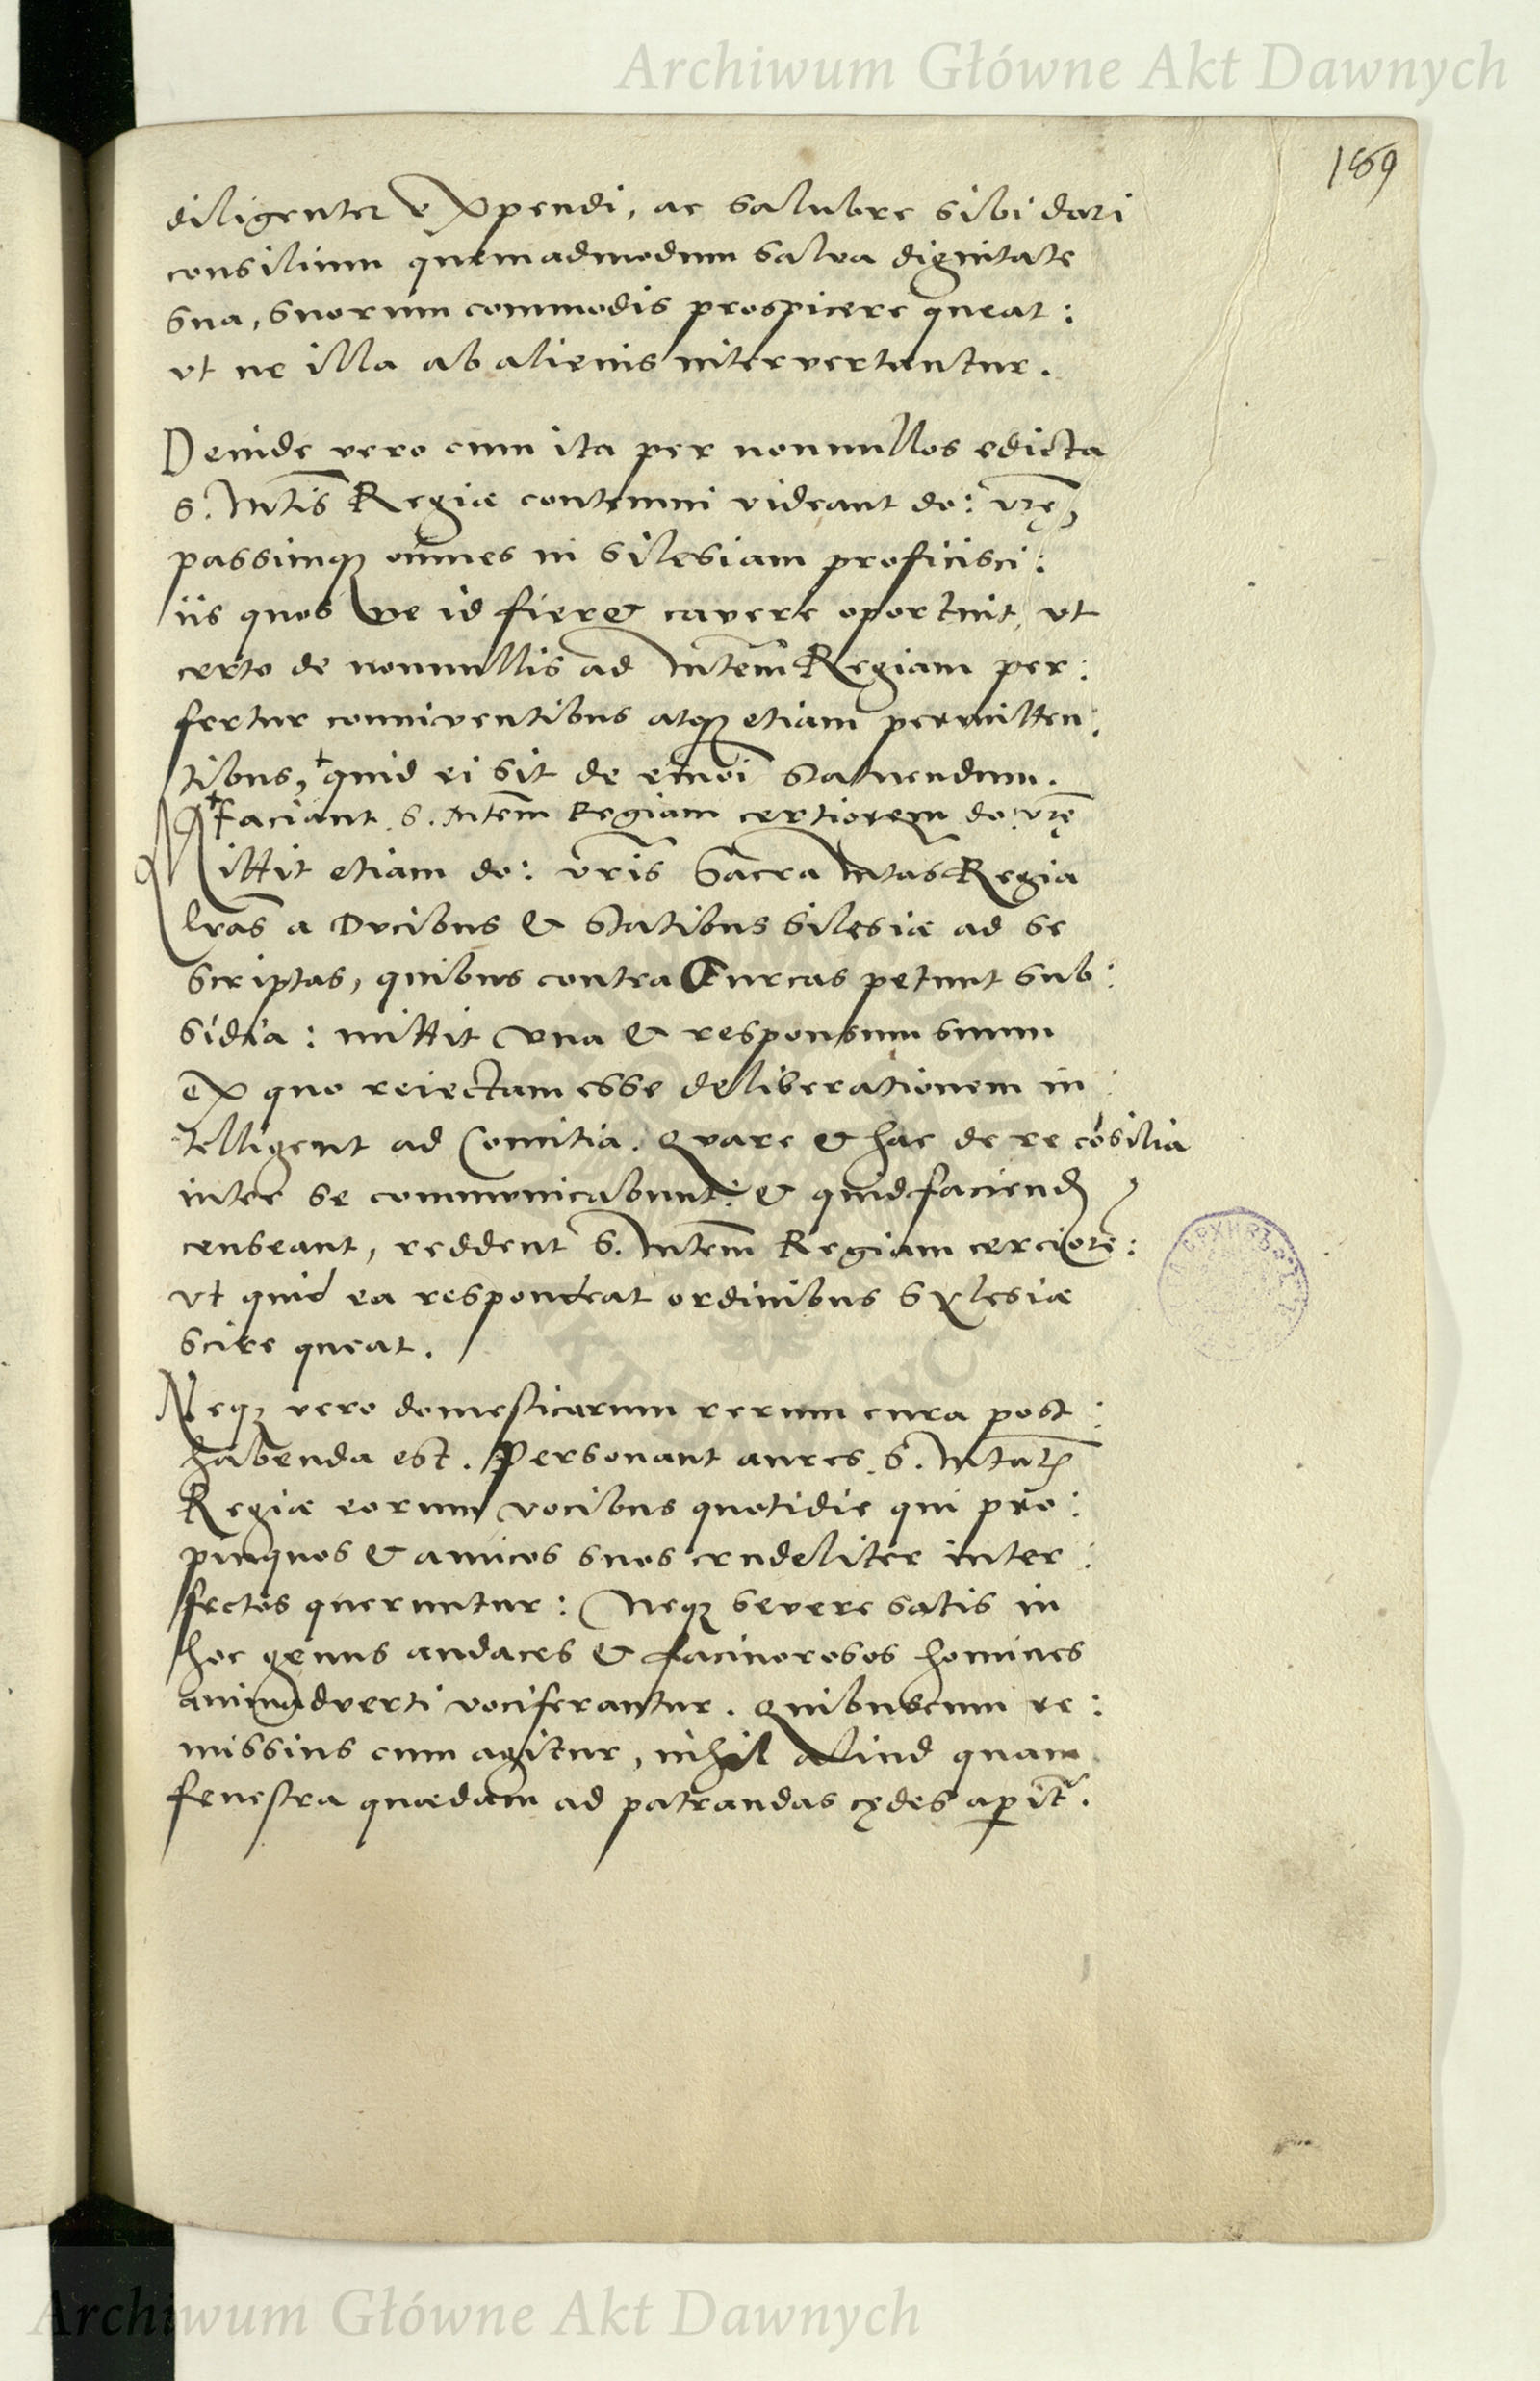 Archiwum Główne Akt Dawnych
189
diligenter expendi, ac salubre sibi dari
consilium quemadmodum salva dignitate
sua, suorum commodis prospicere queat:
ut ne illa ab alienis intervertantur.
Deinde vero cum ita per nonnullos edicta
S. Mtis Regiæ contemni videant do: vrę,
passimq; omnes in Silesiam proficisci:
iis quos ne id fieret cavere oportuit, ut
certo de nonnullis ad Mtem Regiam per:
fertur conniventibus atq; etiam permitten:
tibus, + quid ei sit de eiusmoi statuendum.
+ Faciant S. Mtem Regiam certiorem do: vrę
Mittit etiam do: vris Sacra Mtas Regia
lras a Ducibus & Statibus Silesiæ ad se
scriptas, quibus contra Turcas petunt sub:
sidia: mittit una & responsum suum
ex quo reiectam esse deliberationem in:
telligent ad Comitia. Quare & hac de re cōsilia
inter se communicabunt: & quid faciend
censeant, reddent S. Mtem Regiam cerciorē:
ut quid ea respondeat ordinibus Sylesiæ
scire queat.
Neq; vero domesticarum rerum cura post:
habenda est. Personant aures S. Mtatis
Regiæ eorum vocibus quotidie qui pro:
pinquos & amicos suos crudeliter inter:
fectos queruntur: Neq; severe satis in
hoc genus audaces & facinorosos homines
animadverti vociferantur. Quibuscum re:
missius cum agitur, nihil aliud quam
fenestra quædam ad patrandas cędes aperit.
Archiwum Główne Akt Dawnych